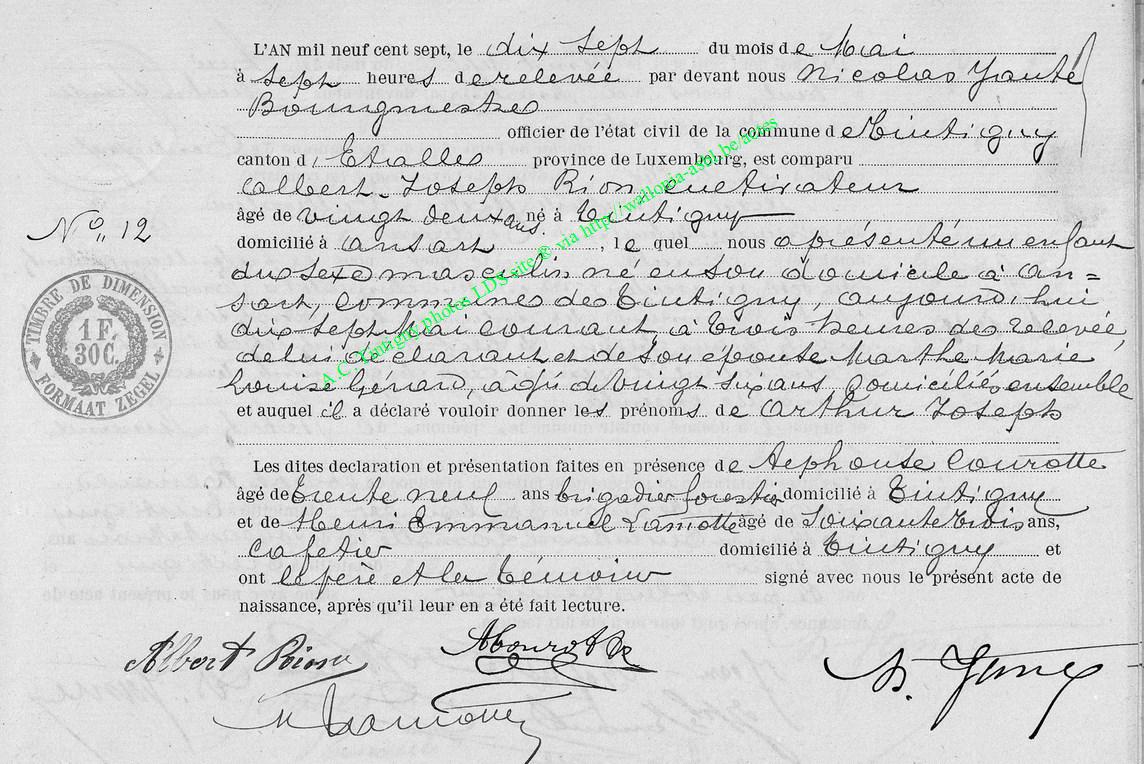 L'AN mil neuf cent sept, le dix sept du mois de Mai
à sept heures de relevée par devant nous Nicolas
Bourgmestre
officier de l'état civil de la commune de Tintigny
canton d'Etalles province de Luxembourg, est comparu
Albert Joseph Rion cultivateur
âgé de vingt deux ans, né à Tintigny
domicilié à Ansart, le quel nous a présenté un enfant
du sexe masculin, né en son domicile à An=
sart, commune de Tintigny, aujourd'hui
dix sept Mai courant à trois heures de relevée
de lui déclarant et de son épouse Marthe Marie
Louise Gérard, âgé de vingt six ans, domiciliés ensemble
et auquel il a déclaré vouloir donner les prénoms de Arthur Joseph
Les dites declaration et présentation faites en présence de Alphonse Courotte
âgé de trente neuf ans brigadier forestier domicilié à Tintigny
et de Henri Emmanuel Lamotte âgé de soixante trois ans,
cafetier domicilié à Tintigny et
ont le père et les témoins signé avec nous le présent acte de
naissance, après qu'il leur en a été fait lecture.
No. 12
TIMBRE DE DIMENSION
1 F.
30 C.
FORMAAT ZEGEL
A.C. Tintigny photos LDS site ® via http://wallonia-asbl.be/actes
Albert Rion
ACourotte
H Lamotte
N.